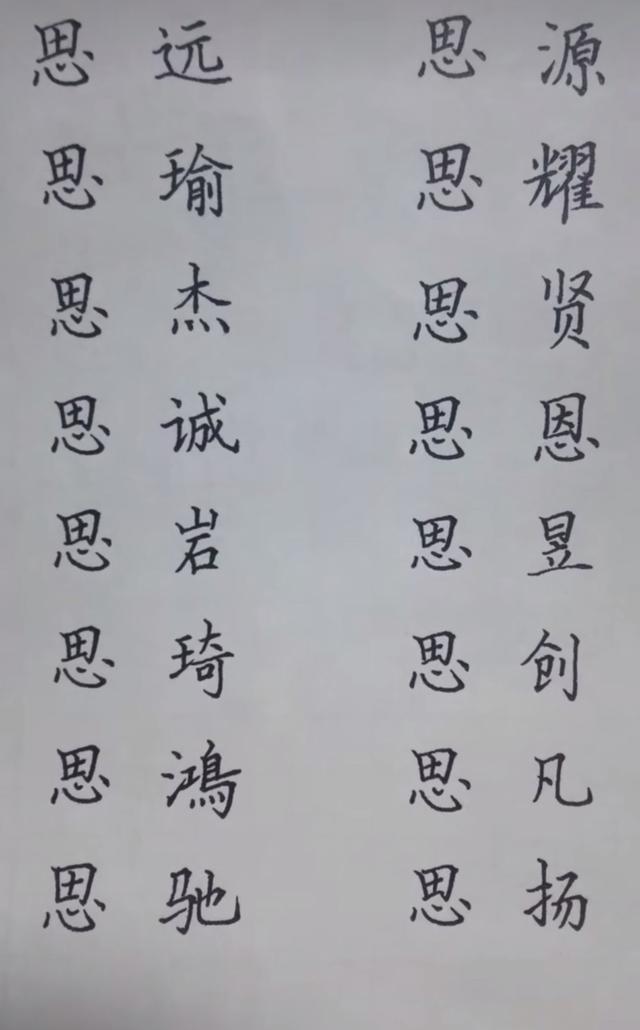 思远 思源
思瑜 思耀
思杰 思贤
思诚 思恩
思岩 思昱
思琦 思创
思鴻 思凡
思驰 思扬